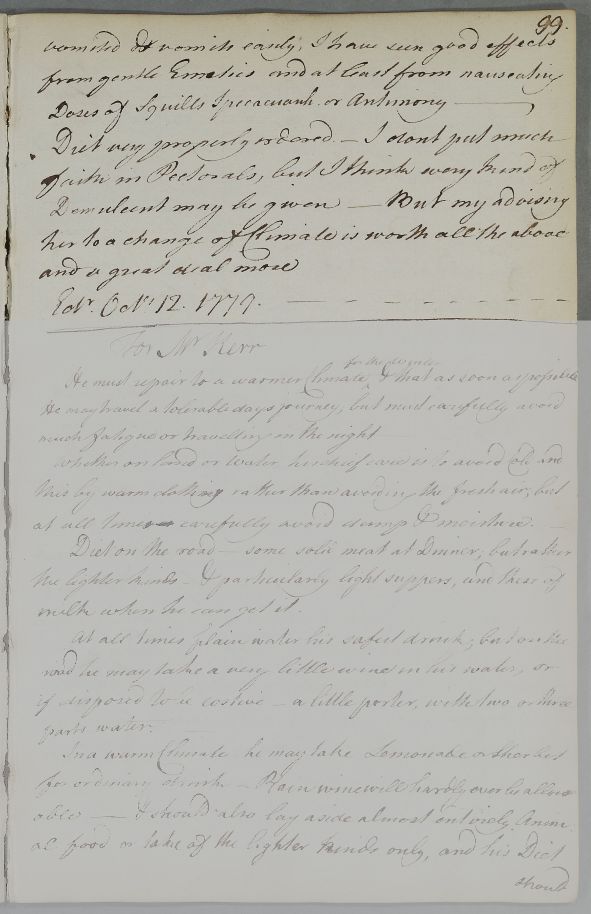 99.
vomited & vomits easily, I have seen good effects
from gentle Emetics and at least from nauseating
Doses of Squills Ipecacuanh. or Antimony —
Diet very properly ordered — I dont put much
faith in Pectorals, but I think every kind of
Demulcent may be given — But my advising
her to a change of Climate is worth all the above
and a great deal more
Edr. Octr. 12. 1779. — — — — — —
For Mr. Kerr
for the winter
He must repair to a warmer Climate, & that as soon as possible
He may travel a tolerable days journey, but must carefully avoid
much fatigue or travelling in the night
Whether on land or water his chief care is to avoid cold and
this by warm clothing rather than avoiding the fresh air, but
at all times carefully avoid damp & moisture. —
Diet on the road — some solid meat at Dinner, but rather
the lighter kinds — & particularly light suppers, and these of
milk when he can get it.
At all times plain water his safest drink; but on the
road he may take a very little wine in his water, or
if disposed to be costive — a little porter, with two or three
parts water. —
In a warm Climate he may take Lemonade or Sherbet
for ordinary drink — Plain wine will hardly ever be allow
able — I should also lay aside almost entirely Anim
al food or take of the lighter kinds only, and his Diet
should